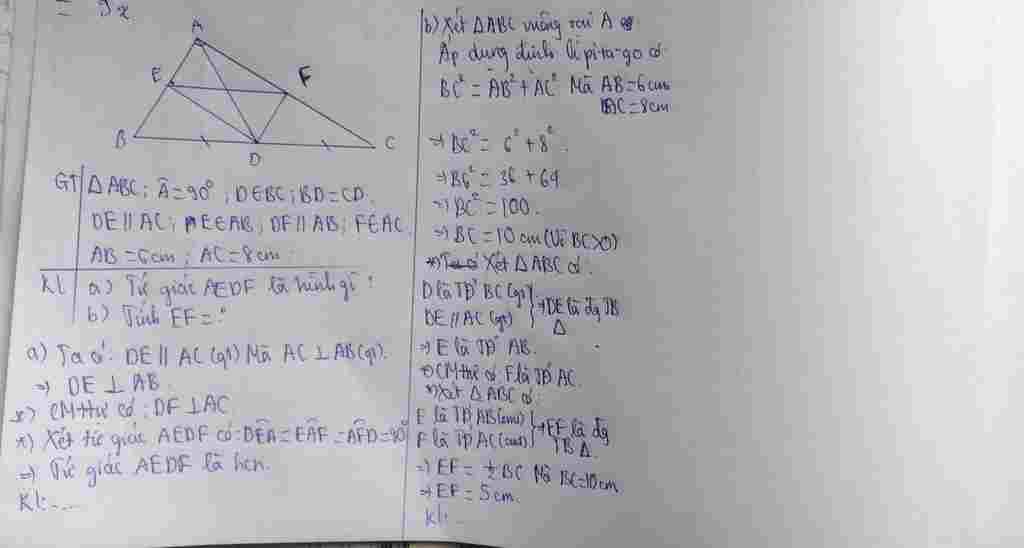 = 9x
A
E
F
B
D
C
GT ΔABC; Â=90°; D∈BC; BD=CD.
DE//AC; E∈AB; DF//AB; F∈AC
AB=6cm; AC=8cm
KL a) Tứ giác AEDF là hình gì?
b) Tính EF=?
a) Ta có: DE//AC (gt) Mà AC⊥AB (gt).
⇒ DE⊥AB
*) CM ttự có: DF⊥AC
*) Xét tứ giác AEDF có: DÊA=EÂF=AF̂D=90°
⇒ Tứ giác AEDF là hcn.
KL:...
b) Xét ΔABC vuông tại A có
Áp dụng định lí pi-ta-go có
BC²=AB²+AC² Mà AB=6cm
AC=8cm
⇒ BC²=6²+8².
⇒ BC²=36+64
⇒ BC²=100.
⇒ BC=10cm (Vì BC>0)
*) Xét ΔABC có:
D là TĐ BC (gt) } ⇒ DE là đg TB
DE//AC (gt) Δ
⇒ E là TĐ AB.
*) CM ttự có F là TĐ AC.
*) Xét ΔABC có:
E là TĐ AB (cmt) } ⇒ EF là đg
F là TĐ AC (cmt) TB Δ.
⇒ EF=½BC Mà BC=10cm
⇒ EF=5cm.
KL: